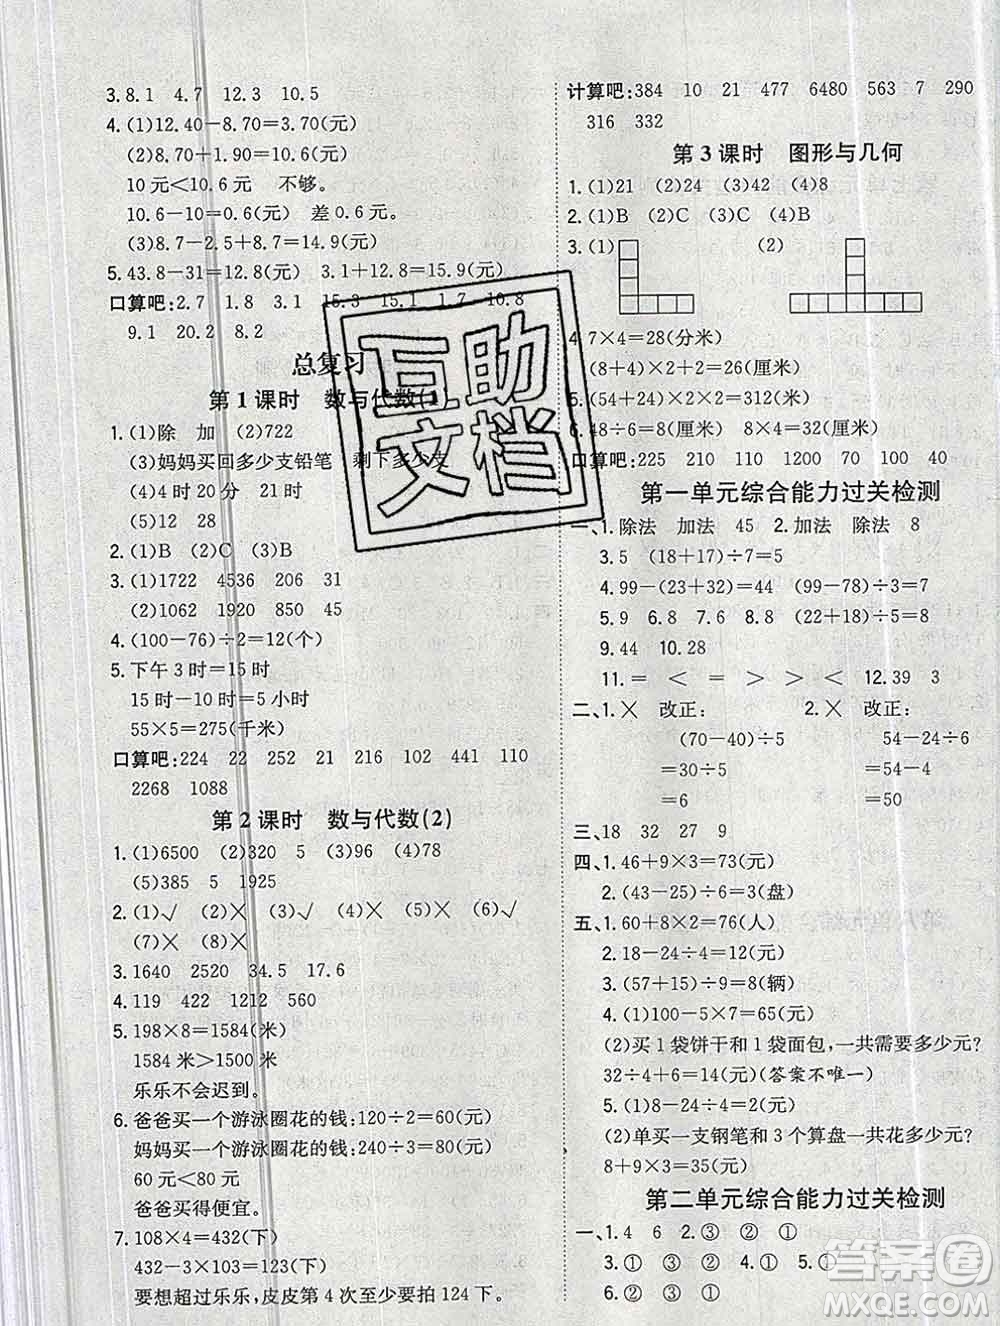 3.8.1 4.7 12.3 10.5
4.(1)12.40－8.70＝3.70(元)
(2)8.70＋1.90＝10.6(元)
10元＜10.6元 不够。
10.6－10＝0.6(元) 差0.6元。
(3)8.7－2.5＋8.7＝14.9(元)
5.43.8－31＝12.8(元) 3.1＋12.8＝15.9(元)
口算吧:2.7 1.8 3.1 15.3 15.1 1.7 10.8
9.1 20.2 8.2
总复习
第1课时 数与代数(1)
1.(1)除 加 (2)722
(3)妈妈买回多少支铅笔 剩下多少支
(4)4时20分 21时
(5)12 28
2.(1)B (2)C (3)B
3.(1)1722 4536 206 31
(2)1062 1920 850 45
4.(100－76)÷2＝12(个)
5.下午3时＝15时
15时－10时＝5小时
55×5＝275(千米)
口算吧:224 22 252 21 216 102 441 110
2268 1088
第2课时 数与代数(2)
1.(1)6500 (2)320 5 (3)96 (4)78
(5)385 5 1925
2.(1)√ (2)× (3)× (4)× (5)× (6)√
(7)× (8)×
3.1640 2520 34.5 17.6
4.119 422 1212 560
5.198×8＝1584(米)
1584米＞1500米
乐乐不会迟到。
6.爸爸买一个游泳圈花的钱:120÷2＝60(元)
妈妈买一个游泳圈花的钱:240÷3＝80(元)
60元＜80元
爸爸买得便宜。
7.108×4＝432(下)
432－3×103＝123(下)
要想超过乐乐,皮皮第4次至少要拍124下。
计算吧:384 10 21 477 6480 563 7 290
316 332
第3课时 图形与几何
1.(1)21 (2)24 (3)42 (4)8
2.(1)B (2)C (3)C (4)B
3.(1) (2)
4.7×4＝28(分米)
(8＋4)×2＋2＝26(厘米)
5.(54＋24)×2×2＝312(厘米)
6.48÷6＝8(厘米) 8×4＝32(厘米)
口算吧:225 210 110 1200 70 100 40
第一单元综合能力过关检测
一、1.除法 加法 45 2.加法 除法 8
3.5 (18＋17)÷7＝5
4.99－(23＋32)＝44 (99－78)÷3＝7
5.9 6.8 7.6 8.8 (26＋14)÷5＝8
9.44 10.28
11.＝ ＜ ＝ ＞ ＞ ＜ 12.39 3
二、1.× 改正: 2.× 改正:
(70－40)÷5 54－24÷6
＝30÷5 ＝54－4
＝6 ＝50
三、18 32 27 9
四、1.46＋9×3＝73(元)
2.(43－25)÷6＝3(盘)
五、1.60＋8×2＝76(人)
2.18－24÷4＝12(元)
3.(57＋15)÷9＝8(辆)
4.(1)100－5×7＝65(元)
(2)买1袋饼干和1袋面包,一共需要多少元?
32÷4＋6＝14(元)(答案不唯一)
5.(1)8－24÷4＝2(元)
(2)单买一支钢笔和3个算盘一共花多少元?
8＋9×3＝35(元)
第二单元综合能力过关检测
一、1.4 6 2.③ ② ①
3.① ③ ② 4.① 5.①
6.② ③ ①
互助
文档
答案圈
MXQE.COM